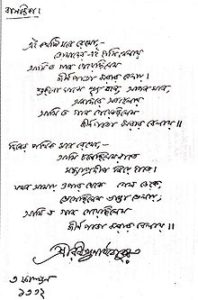 এই কথাটি মনে রেখো,-
তোমাদের এই হাসি খেলায়
আমি যে গান গেয়েছিলেম
জীর্ণ পাতা ঝরার বেলায়।
শুকনো ঘাসে শূন্য বনে, আপন মনে,
অনাদরে অবহেলায়
আমি যে গান গেয়েছিলেম
জীর্ণ পাতা ঝরার বেলায়॥
দিনের পথিক মনে রেখো,-
আমি চলেছিলেম রাতে
সন্ধ্যাপ্রদীপ নিয়ে হাতে।
যখন আমায় ওপার থেকে গেল ডেকে,
ভেসেছিলেম ভাঙা ভেলায়,
আমি যে গান গেয়েছিলেম
জীর্ণ পাতা ঝরার বেলায়॥
শ্রীরবীন্দ্রনাথ ঠাকুর
৩ ফাল্গুন